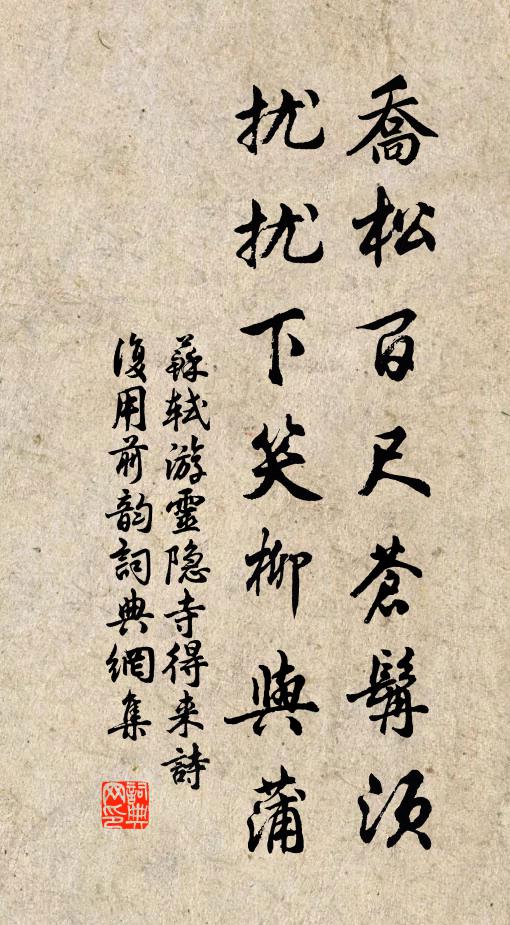 喬松百尺蒼髯須
扰扰下笑柳與蒲
蘇軾游靈隐寺得来詩
復用前韵詞典網集
詞典网印